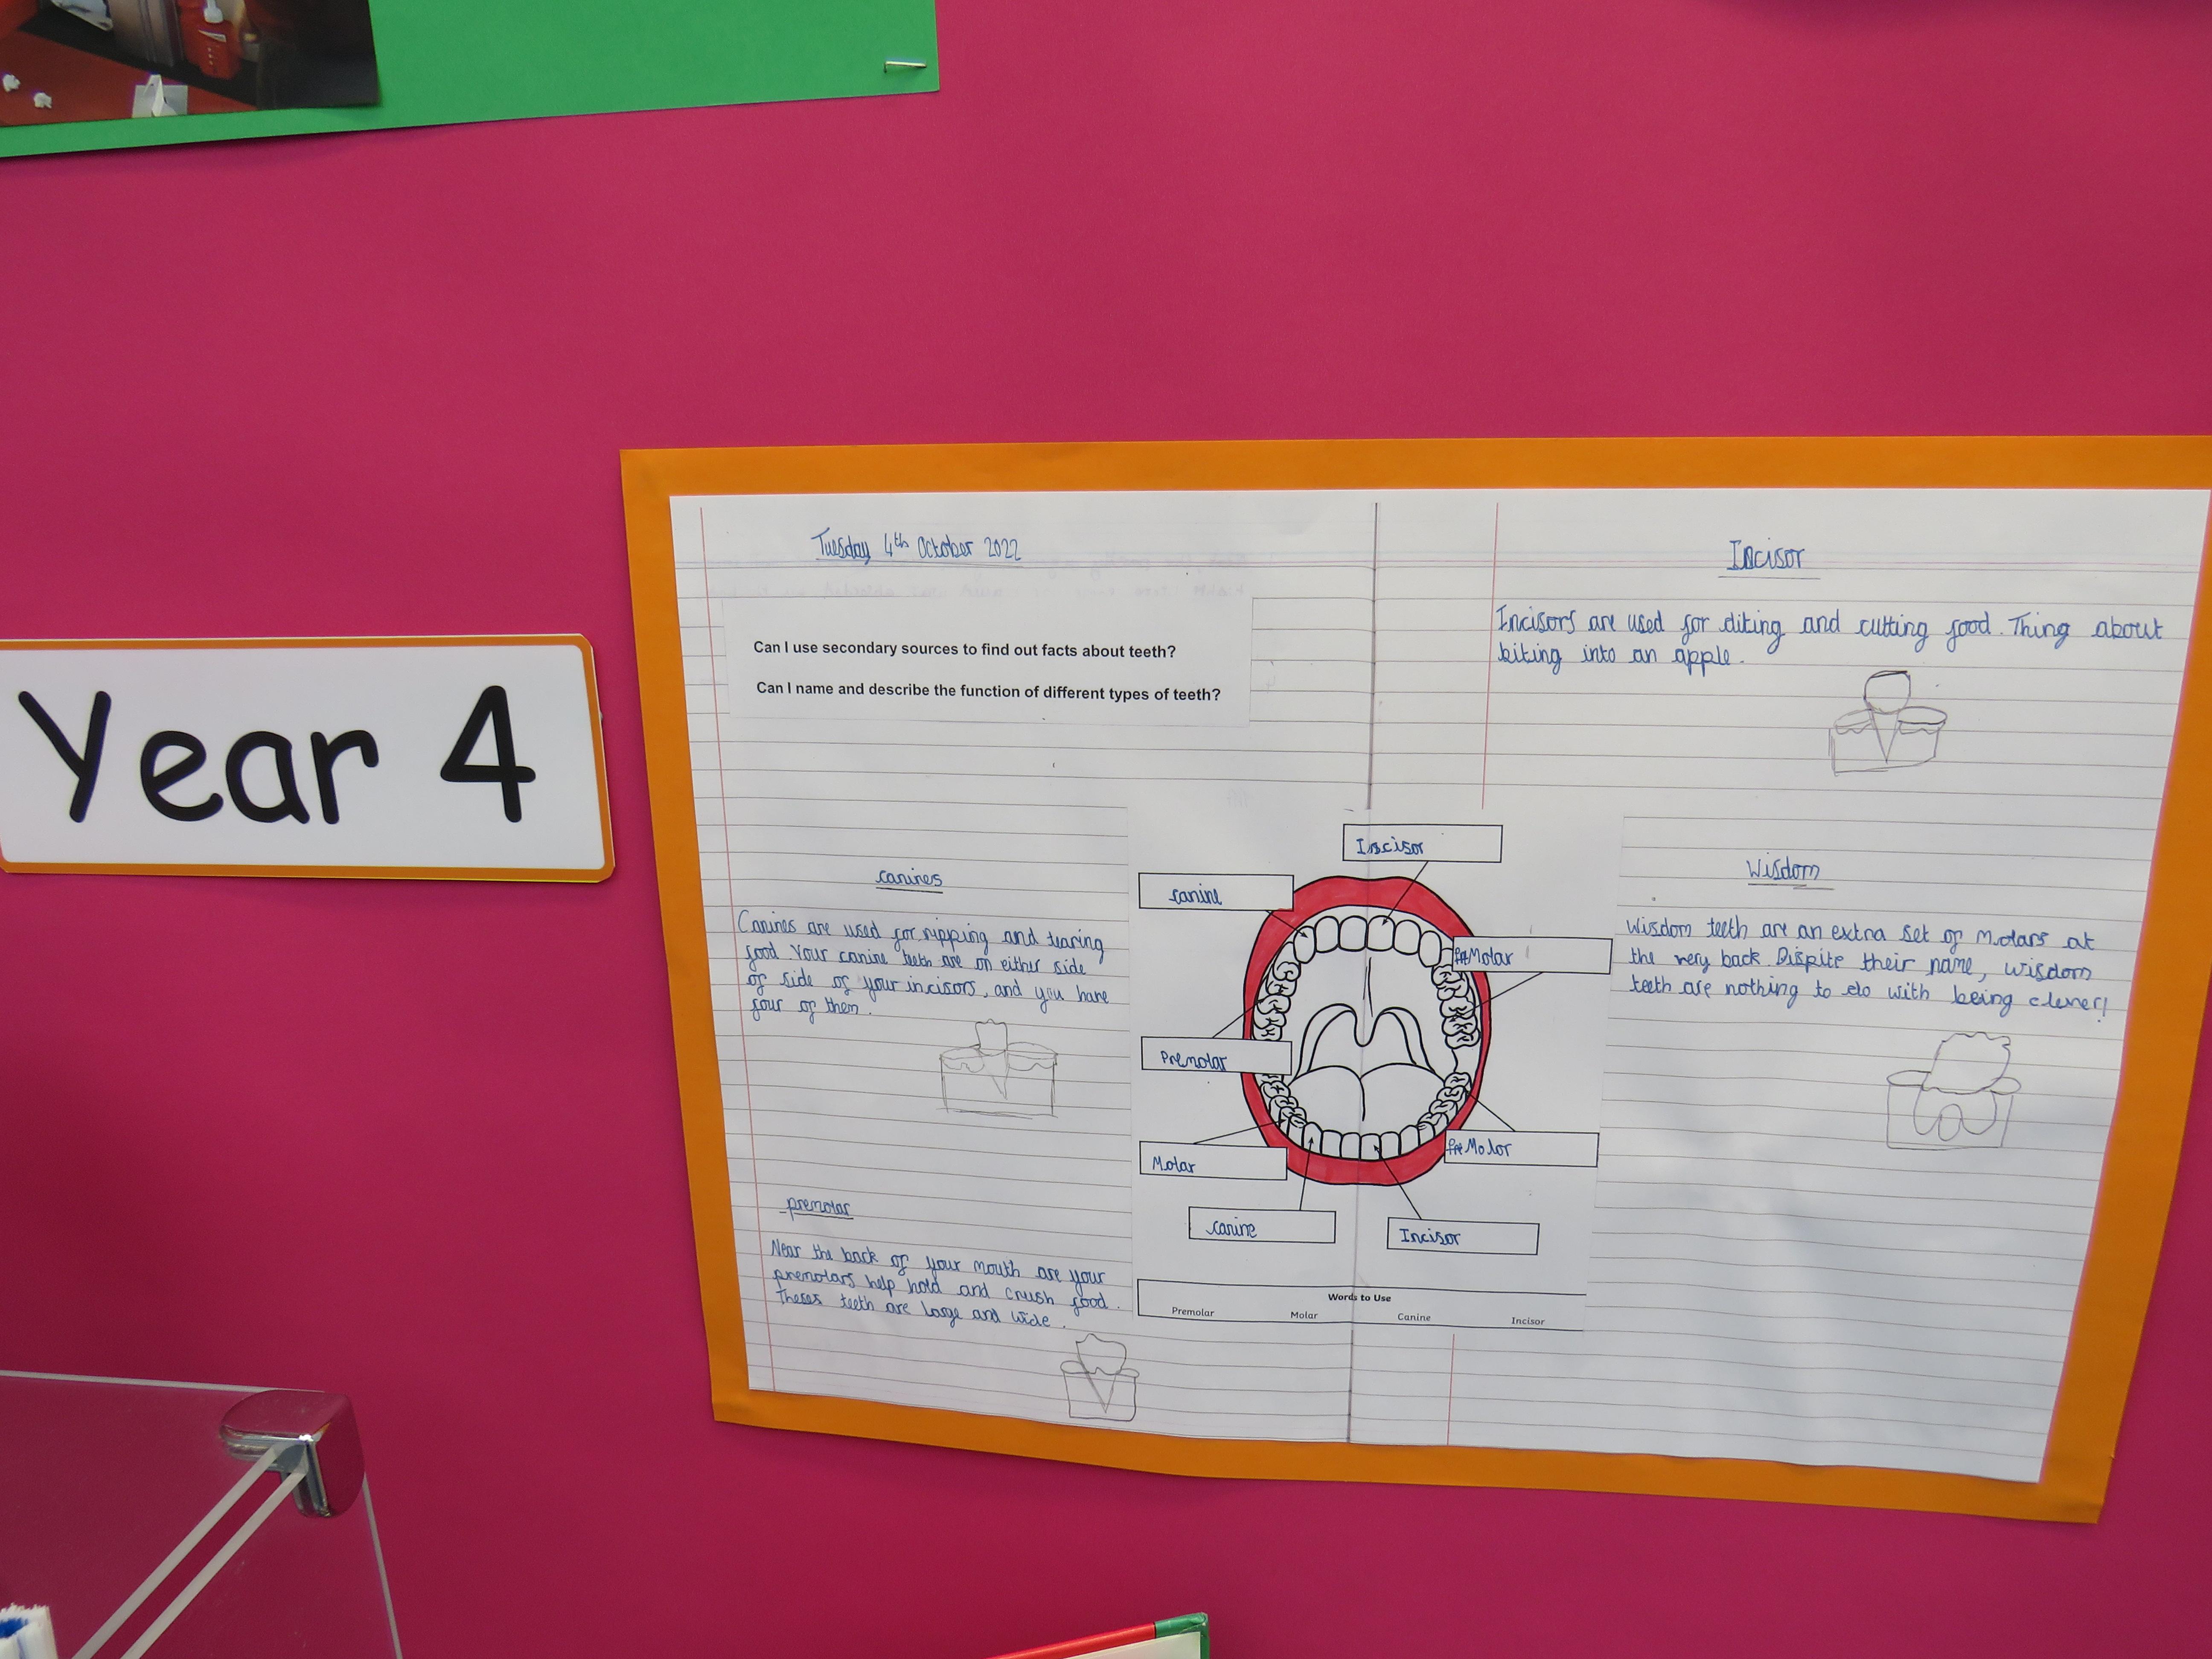 Year 4
Tuesday 4th October 2022
Can I use secondary sources to find out facts about teeth?
Can I name and describe the function of different types of teeth?
canines
Canines are used for ripping and tearing
food. Your canine teeth are on either side
of side of your incisors, and you have
four of them.
premolar
Near the back of your mouth are your
premolars help hold and crush food.
Theses teeth are large and wide.
Incisor
canine
PreMolar
Premolar
Molar
PreMolor
canine
Incisor
Words to Use
Premolar Molar Canine Incisor
Incisor
Incisors are used for diting and cutting food. Thing about
biting into an apple.
Wisdom
Wisdom teeth are an extra set of Molars at
the very back. Dispite their name, wisdom
teeth are nothing to do with being clever!